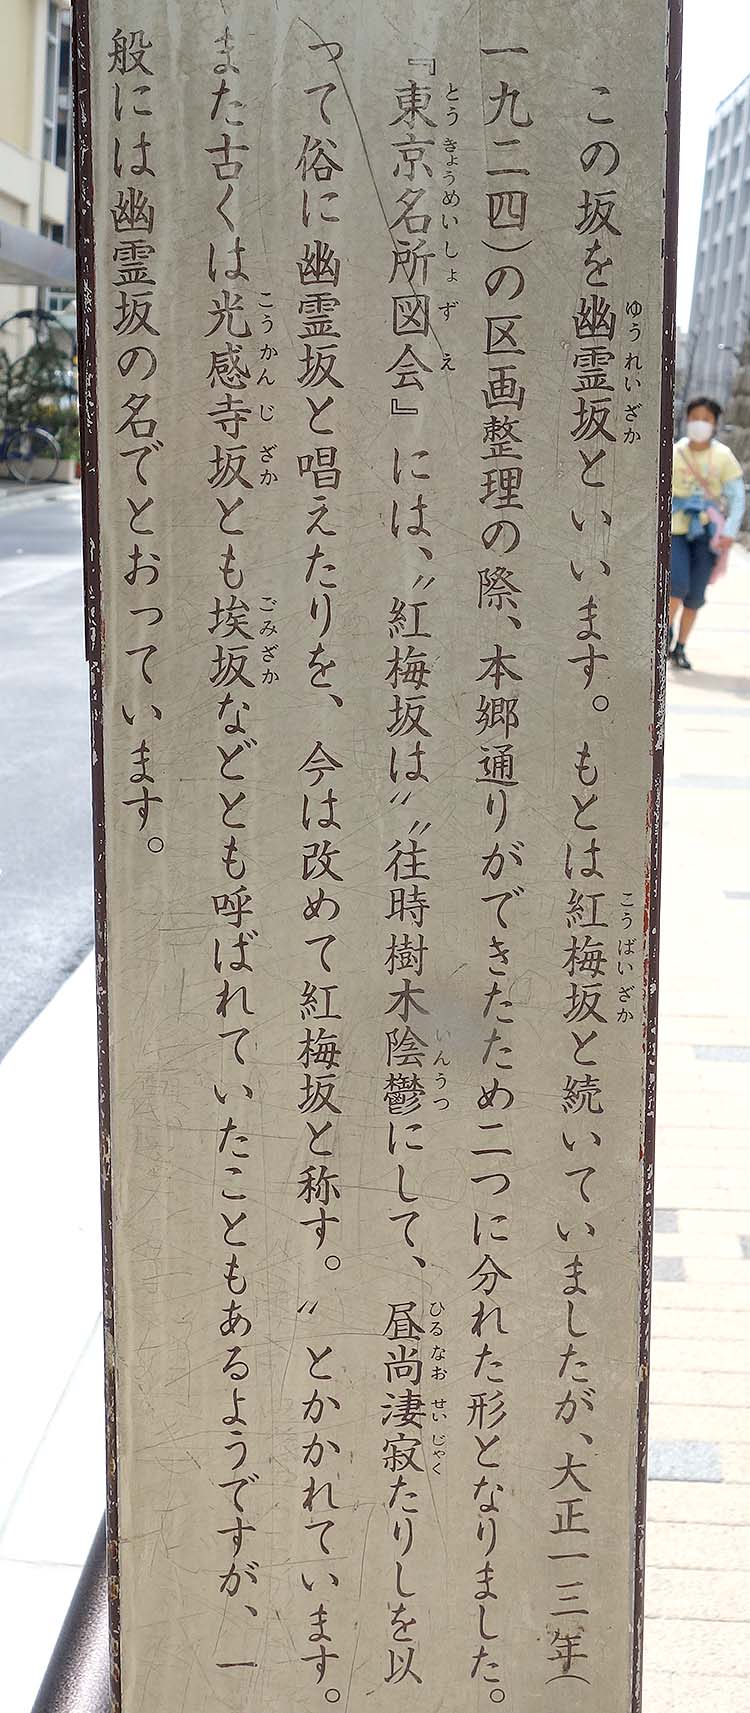 この坂を幽霊坂といいます。もとは紅梅坂と続いていましたが、大正一三年(
一九二四)の区画整理の際、本郷通りができたため二つに分れた形となりました。
『東京名所図会』には、〝紅梅坂は〟〝往時樹木陰鬱にして、昼尚凄寂たりしを以
って俗に幽霊坂と唱えたりを、今は改めて紅梅坂と称す。〟とかかれています。
また古くは光感寺坂とも埃坂などとも呼ばれていたこともあるようですが、一
般には幽霊坂の名でとおっています。
ゆうれいざか
こうばいざか
とうきょうめいしょずえ
いんうつ
ひるなおせいじゃく
こうかんじざか
ごみざか